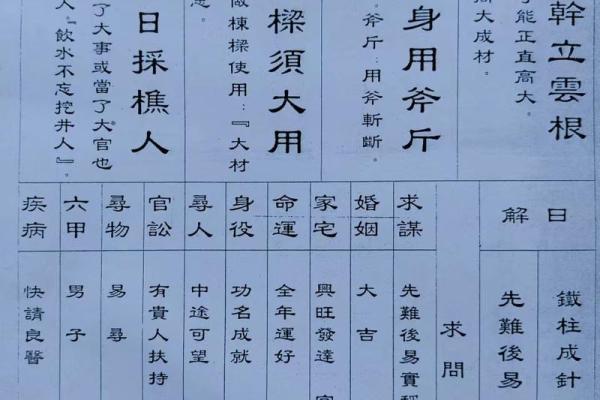 幹立雲根
能正直高大。
大成材。
身用斧斤
斧斤：用斧斬斷。
樑須大用
棟樑使用：『大材
日採樵人
了大事或當了大官也
人。『飲水不忘挖井人』。
日解
鐵柱成針
先難後易
求問
求謀
先難後易實稱
婚姻
大吉
家宅
興旺發達
命運
全年運好
身役
功名成就
尋人
中途可望
官訟
有貴人扶持
尋物
易尋
六甲
男子
疾病
快請良醫